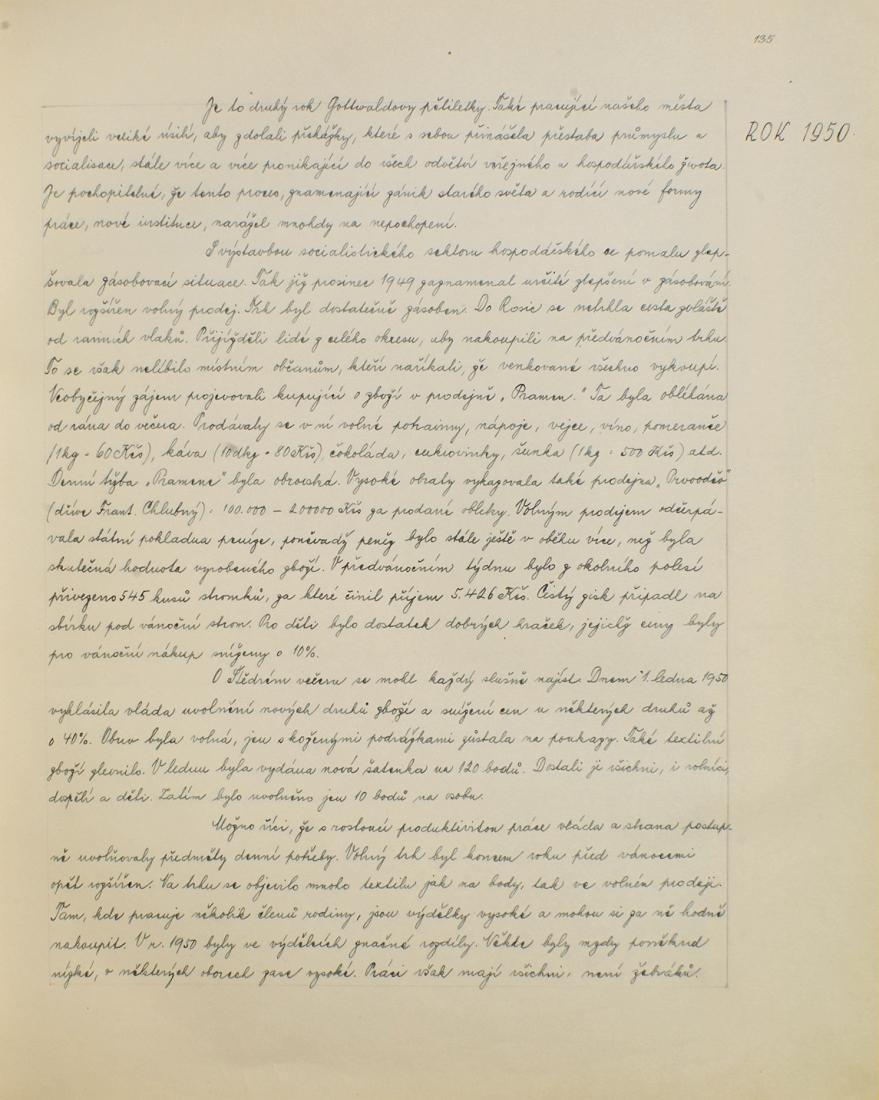 135
ROK 1950.
Je to druhý rok Gottwaldovy pětiletky. Také pracující našeho města
vyvíjeli veliké úsilí, aby zdolali překážky, které s sebou přinášela přestavba průmyslu a
socialisace, stále více a více pronikající do všech odvětví veřejného a hospodářského života.
Je pochopitelné, že tento proces, znamenající zánik starého světa a rodící nové formy
práce, nové instituce, narážel mnohdy na nepochopení.
S výstavbou socialistického sektoru hospodářského se pomalu zlep-
šovala zásobovací situace. Tak již prosinec 1949 zaznamenal určité zlepšení v zásobování.
Byl rozšířen volný prodej. Trh byl dostatečně zásoben. Do Rosic se netrhla cesta zvláště
od ranních vlaků. Přijížděli lidé z celého okresu, aby nakoupili na předvánočním trhu.
To se však nelíbilo místním občanům, kteří naříkali, že venkované všechno vykoupí.
Neobyčejný zájem projevovali kupující o zboží v prodejně „Pramen." Ta byla obléhána
od rána do večera. Prodávaly se v ní volně potraviny, nápoje, vejce, víno, pomeranče
(1kg - 60 Kčs), káva (10dkg - 80 Kčs), čokoláda, cukrovinky, šunka (1kg - 500 Kčs) atd.
Denní tržba „Pramene" byla obrovská. Vysoké obraty vykazovala také prodejna „Prvooděv"
(dříve Frant. Chlubný) - 100.000 – 200000 Kčs za prodané obleky. Volným prodejem odčerpá-
vala státní pokladna peníze, poněvadž peněz bylo stále ještě v oběhu více, než byla
skutečná hodnota vyrobeného zboží. V předvánočním týdnu bylo z okolního polesí
přivezeno 545 kusů stromků, za které činil příjem 5.426 Kčs. Čistý zisk připadl na
sbírku pod vánoční strom. Pro děti bylo dostatek dobrých hraček, jejichž ceny byly
pro vánoční nákup sníženy o 10%.
O Štědrém večeru se mohl každý slušně najíst. Dnem 1. ledna 1950
vyhlásila vláda uvolnění nových druhů zboží a snížení cen u některých druhů až
o 40%. Obuv byla volná, jen s koženými podrážkami zůstala na poukazy. Také textilní
zboží zlevnilo. V lednu byla vydána nová šatenka na 120 bodů. Dostali je všichni, i rolníci,
dospělí a děti. Zatím bylo uvolněno jen 10 bodů na osobu.
Možno říci, že s rostoucí produktivitou práce vláda a strana postup-
ně uvolňovaly předměty denní potřeby. Volný trh byl koncem roku před vánocemi
opět rozšířen. Na trhu se objevilo mnoho textilu jak na body, tak ve volném prodeji.
Tam, kde pracuje několik členů rodiny, jsou výdělky vysoké a mohou si za ně hodně
nakoupit. V r. 1950 byly ve výdělcích značné rozdíly. Někde byly mzdy poněkud
nízké, v některých oborech zase vysoké. Práci však mají všichni, není žebráků.